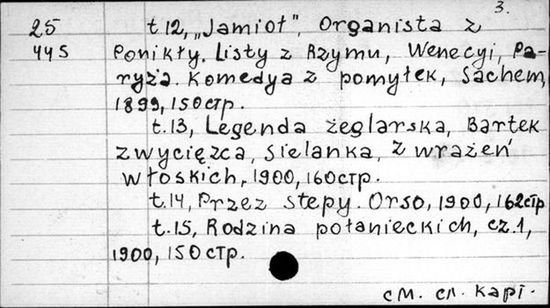 3.
25 t.12, „Jamioł", Organista z
445 Ponikły. Listy z Rzymu, Wenecyi, Pa-
ryża. Komedya z pomyłek, Sachem,
1899, 150стр.
t.13, Legenda żeglarska, Bartek
zwycięzca, Sielanka, Z wrażeń
włoskich, 1900, 160стр.
t.14, Przez stepy. Orso, 1900, 162стр
t.15, Rodzina połanieckich, cz.1,
1900, 150стр.
см. сл. карт.